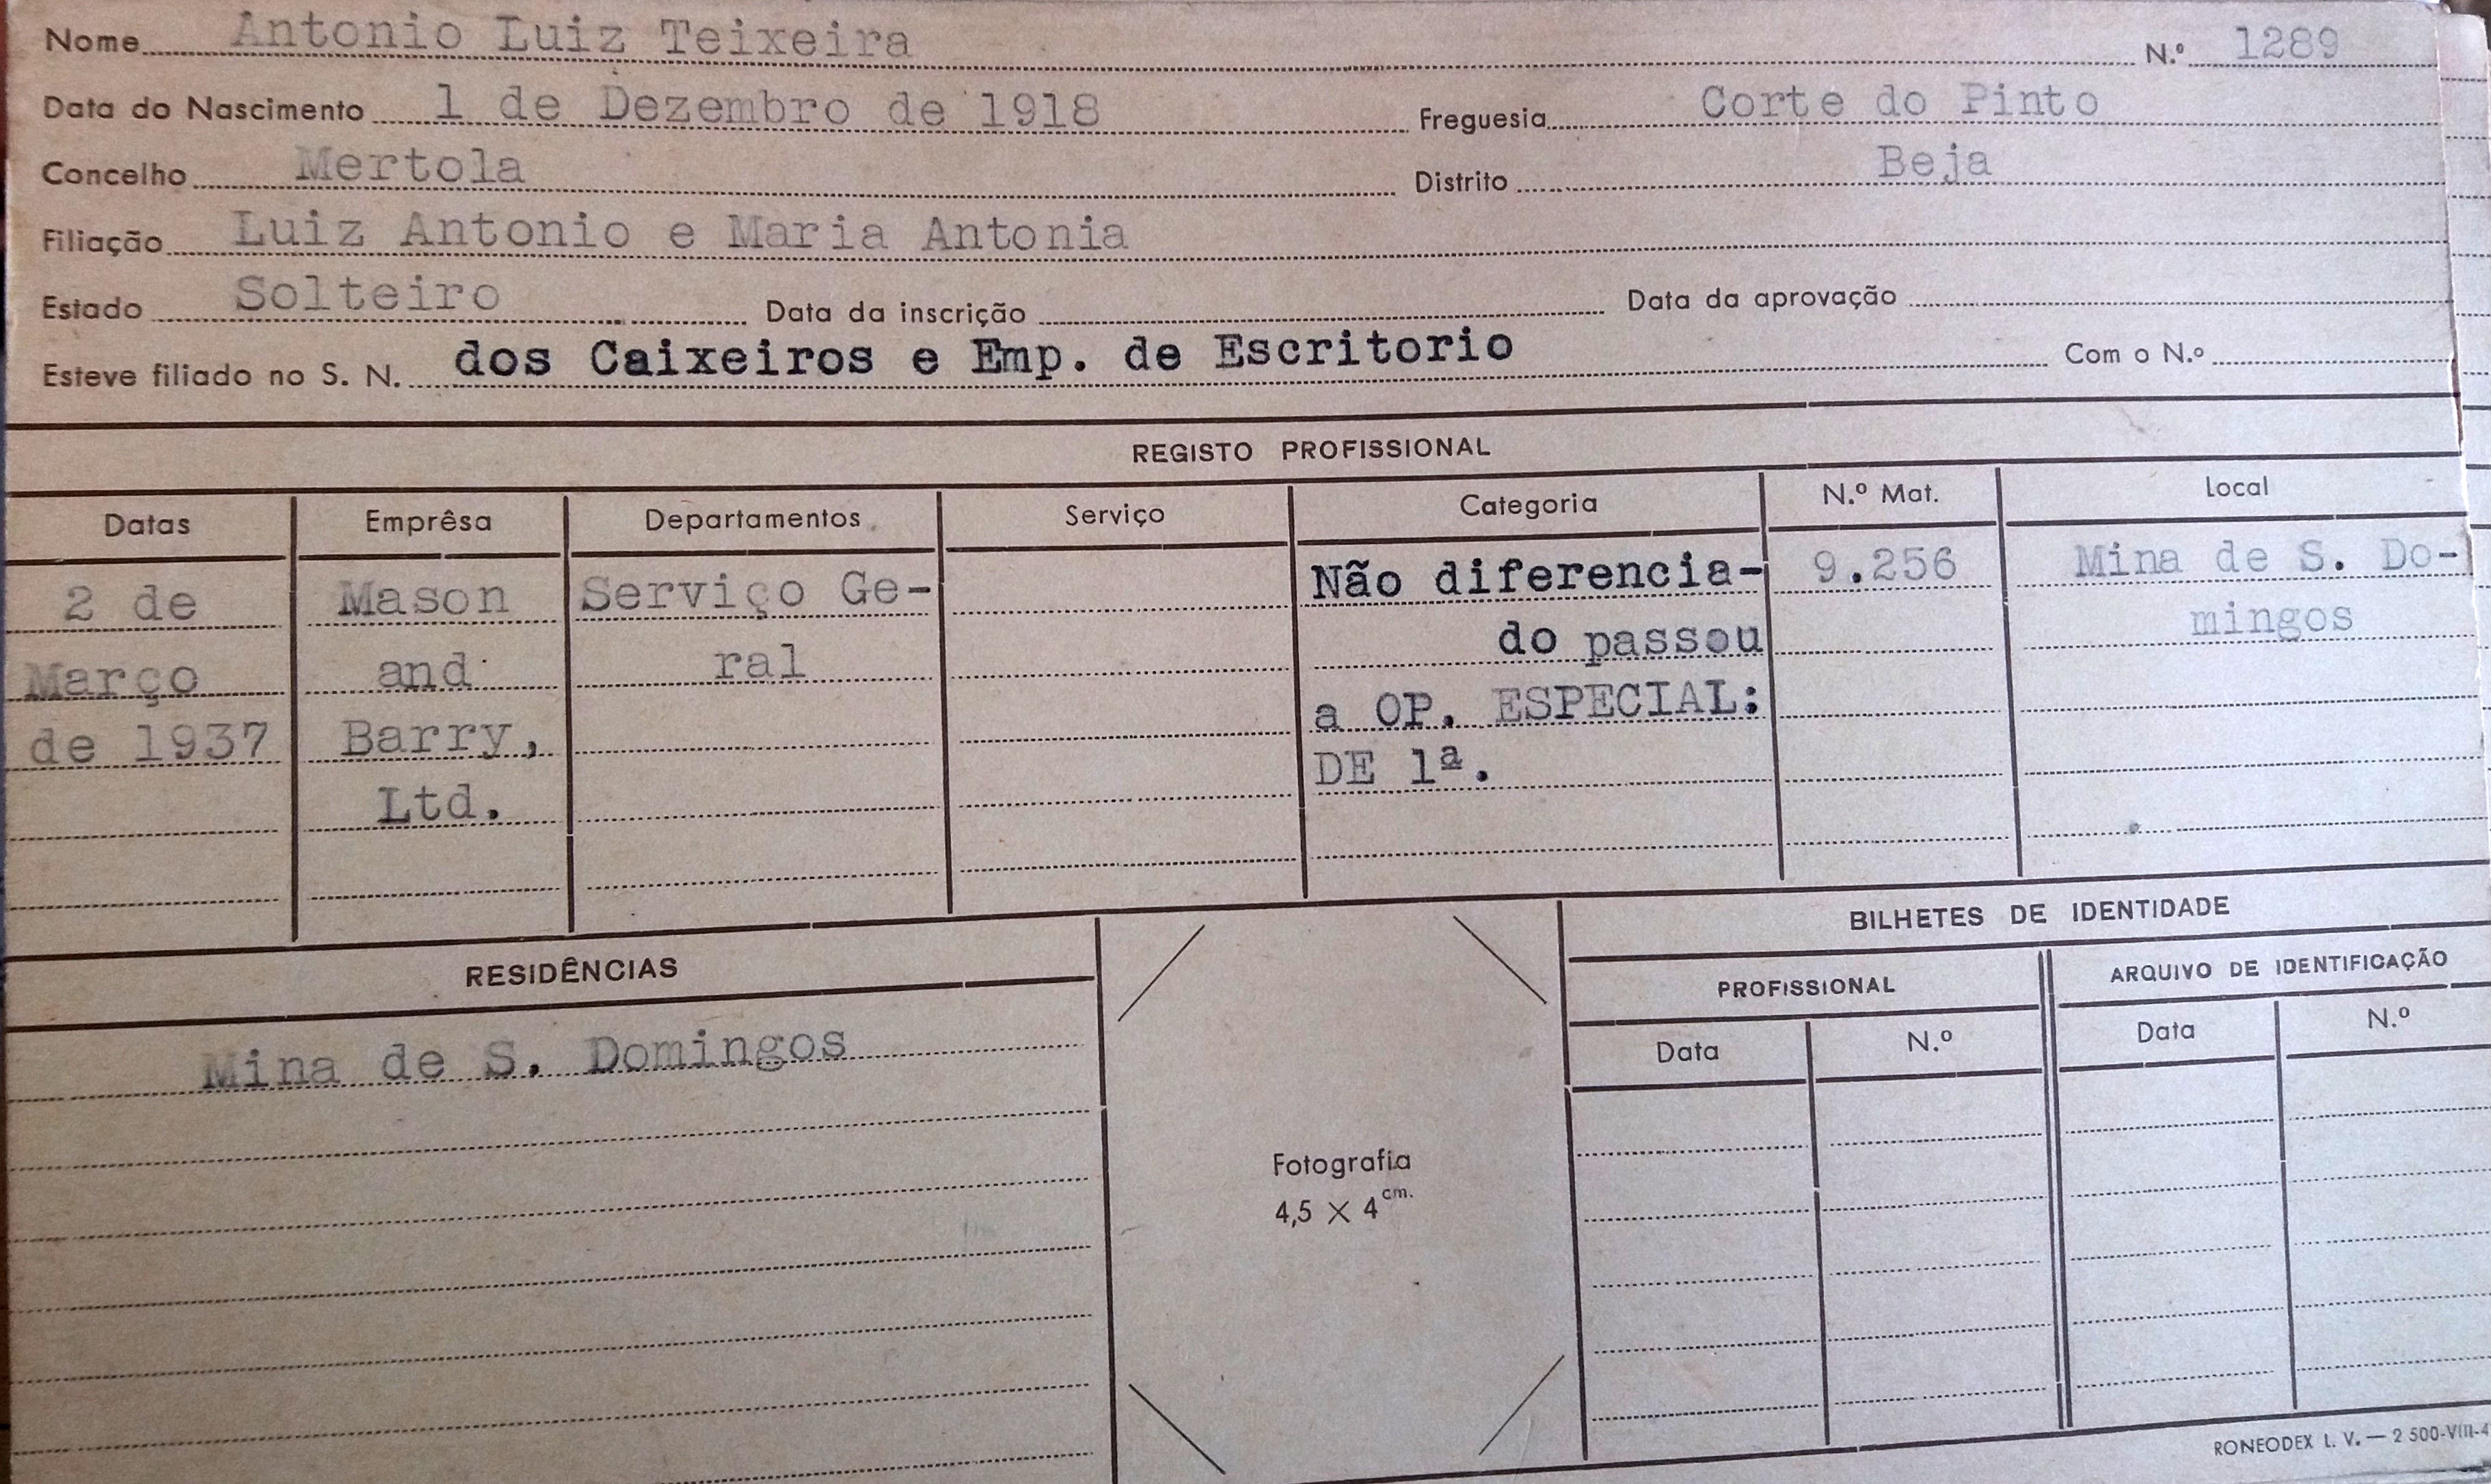 Nome Antonio Luiz Teixeira N.º 1289
Data do Nascimento 1 de Dezembro de 1918 Freguesia Corte do Pinto
Concelho Mertola Distrito Beja
Filiação Luiz Antonio e Maria Antonia
Estado Solteiro Data da inscrição Data da aprovação
Esteve filiado no S. N. dos Caixeiros e Emp. de Escritorio Com o N.º
REGISTO PROFISSIONAL
Datas Emprêsa Departamentos Serviço Categoria N.º Mat. Local
2 de Mason Serviço Ge- Não diferencia- 9.256 Mina de S. Do-
Março and ral do passou mingos
de 1937 Barry, a OP. ESPECIAL:
Ltd. DE 1ª.
RESIDÊNCIAS
Mina de S. Domingos
Fotografia
4,5 × 4 cm.
BILHETES DE IDENTIDADE
PROFISSIONAL ARQUIVO DE IDENTIFICAÇÃO
Data N.º Data N.º
RONEODEX L. V. — 2 500-VIII-4